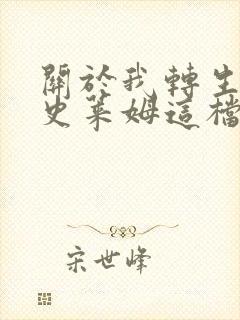 關於我轉生
史萊姆這檔
宋世峰